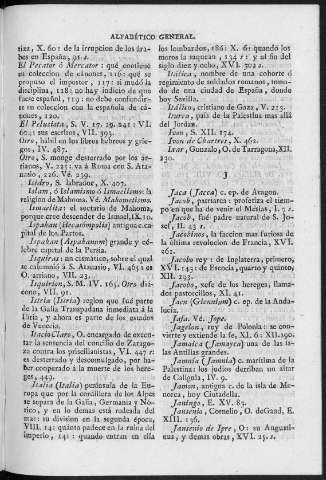 ALFABÉTICO GENERAL.
tiza, X. 60: de la irrupcion de los ára-
bes en España, 91. 2.
El Pecator ó Mercator: qué contiene
su coleccion de cánones, 116: qué se
propuso el impostor, 117: si mudó la
disciplina, 118: no hay indicio de que
fuese español, 119: no debe confundir-
se con la coleccion española de cá-
nones, 120.
El Pelusiota, S. V. 17. 19. 241: VI.
60.: sus escritos, VII. 393.
Otro, hábil en los libros hebreos y grie-
gos, IV. 487.
Otro, S. monge desterrado por los ar-
rianos, V. 225: va á Roma con S. Ata-
nasio, 226. Vé. 239.
Isidro, S. labrador, X. 407.
Islam, ó Islamismo ó Ismaelismo: la
religion de Mahoma. Vé. Mahometismo.
Ismaelita: el sectario de Mahoma,
porque cree descender de Ismael, IX. 10.
Ispahan (Hecatómpolis) antigua ca-
pital de los Partos.
Ispahan (Aspahanum) grande y cé-
lebre capital de la Persia.
Isquiras: un cismático, sobre el qual
se calumnió á S. Atanasio, VI. 465: es
O. arriano, VII. 23.
Isquirion, S. M. IV. 165. Otro diá-
cono, VII. 91.
Istria (Istria) region que fué parte
de la Galia Transpadana inmediata á la
Iliria, y ahora es parte de los estados
de Venecia.
Itacio Claro, O. encargado de execu-
tar la sentencia del concilio de Zarago-
za contra los priscilianistas, VI. 447: es
es desterrado y descomulgado, por ha-
ber cooperado á la muerte de los here-
ges, 449.
Italia (Italia) península de la Eu-
ropa que por la cordillera de los Alpes
se separa de la Galia, Germania y Nó-
rico, y en lo demas está rodeada del
mar: su division en la segunda época,
VIII. 14: quánto padece en la ruina del
imperio, 14: quando entran en ella
los lombardos, 186: X. 6: quando los
moros la saquean, 134: y al fin del
siglo diez y ocho, XVI. 302. 2.
Itálica, nombre de una cohorte ó
regimiento de soldados romanos, toma-
do de una ciudad de España, donde
hoy Sevilla.
Itálica, cristiano de Gaza, V. 215.
Iturea, pais de la Palestina mas allá
del Jordan.
Ivon, S. XII. 174.
Ivon de Chartres, X. 462.
Ixar, Gonzalo, O. de Tarragona, XII.
230.
J
Jaca (Jacca) c. ep. de Aragon.
Jacob, patriarca: profetiza el tiem-
po en que ha de venir el Mesías, I. 72.
Jacob, fué padre natural de S. Jo-
sef, II. 43. 2.
Jacobinos, la faccion mas furiosa de
la última revolucion de Francia, XVI.
262.
Jacobo rey: de Inglaterra, primero,
XVI. 143: de Escocia, quarto y quinto,
XII. 293.
Jacobo, xefe de los hereges, llama-
dos pastorcillos, XI. 41.
Jaen (Giennium) c. ep. de la Anda-
lucía.
Jafa. Vé. Jope.
Jagelon, rey de Polonia: se con-
vierte y extiende la fe, XI. 6: XII. 290.
Jamaica (Jamayca) una de las is-
las Antillas grandes.
Jamnia (Jamnia) c. marítima de la
Palestina: los judíos derriban un altar
de Calígula, IV. 9.
Jamon, antigua c. de la isla de Me-
norca, hoy Ciutadella.
Janingo, E. XV. 85.
Jansenio, Cornelio, O. de Gand, E.
XIII. 136.
Jansenio de Ipre, O: su Augusti-
nus, y demas obras, XVI. 25. 2.